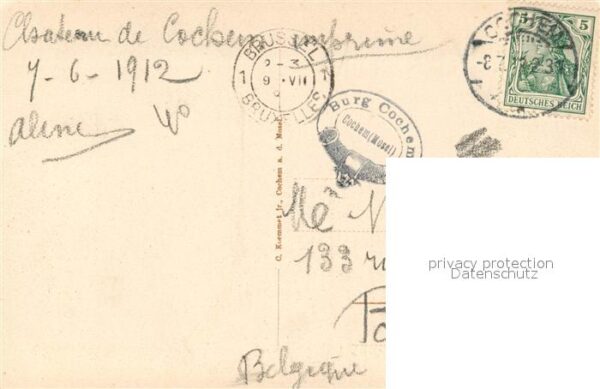 Chateau de Cochem imprimé
7-6-1912
aline
BRUSSEL
1
9 VII
BRUXELLES
COCHEM
-8.7.
5 5
DEUTSCHES REICH
Burg Cochem
Cochem (Mosel)
C. Koemmet jr. Cochem a. d. Mosel
133 ru
Belgique
privacy protection
Datenschutz